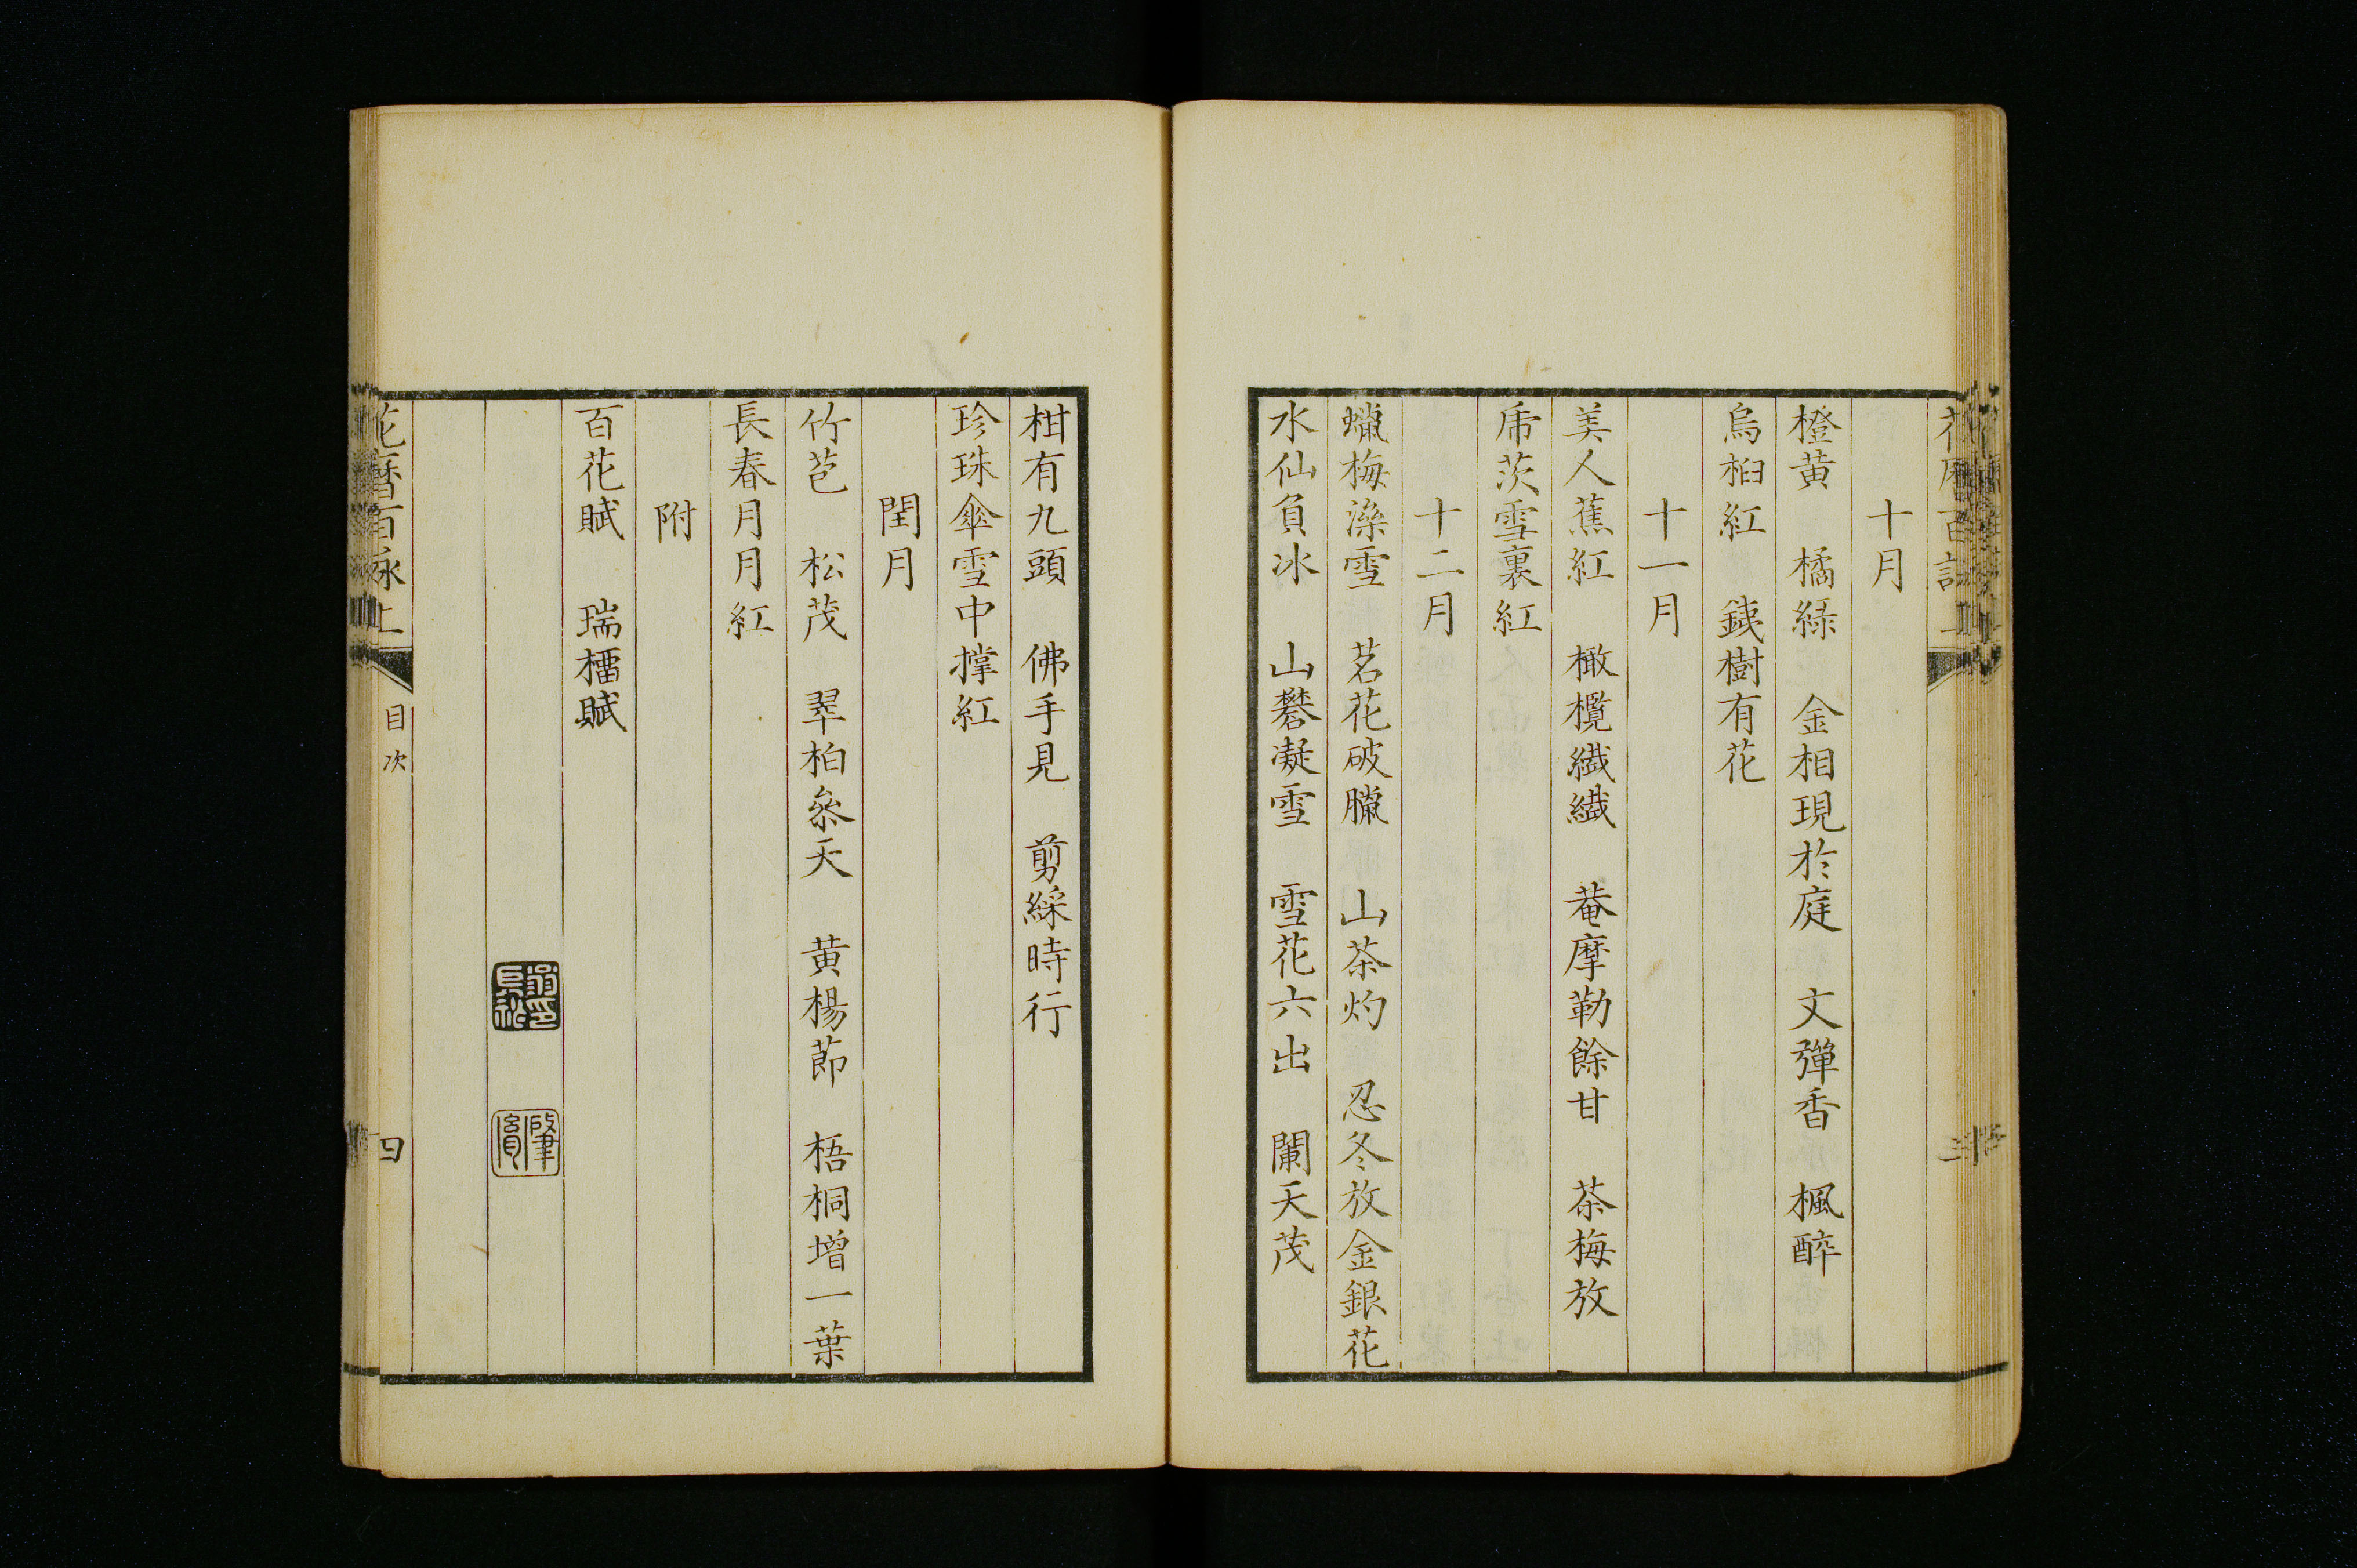 十月
橙黄　橘綠　金相現於庭　文彈香　楓醉
烏桕紅　銕樹有花
十一月
美人蕉紅　橄欖纎纎　菴摩勒餘甘　茶梅放
雪裏紅
十二月
蠟梅澿雪　茗花破臘　山茶灼　忍冬放金銀花
水仙負冰　山礬凝雪　雪花六出　闌天茂
柑有九頭　佛手見　剪綵時行
珍珠傘雪中撑紅
閏月
竹苞　松茂　翠柏叅天　黄楊莭　梧桐增一葉
長春月月紅
附
百花賦　瑞橊賦
花曆百詠上
目次
四